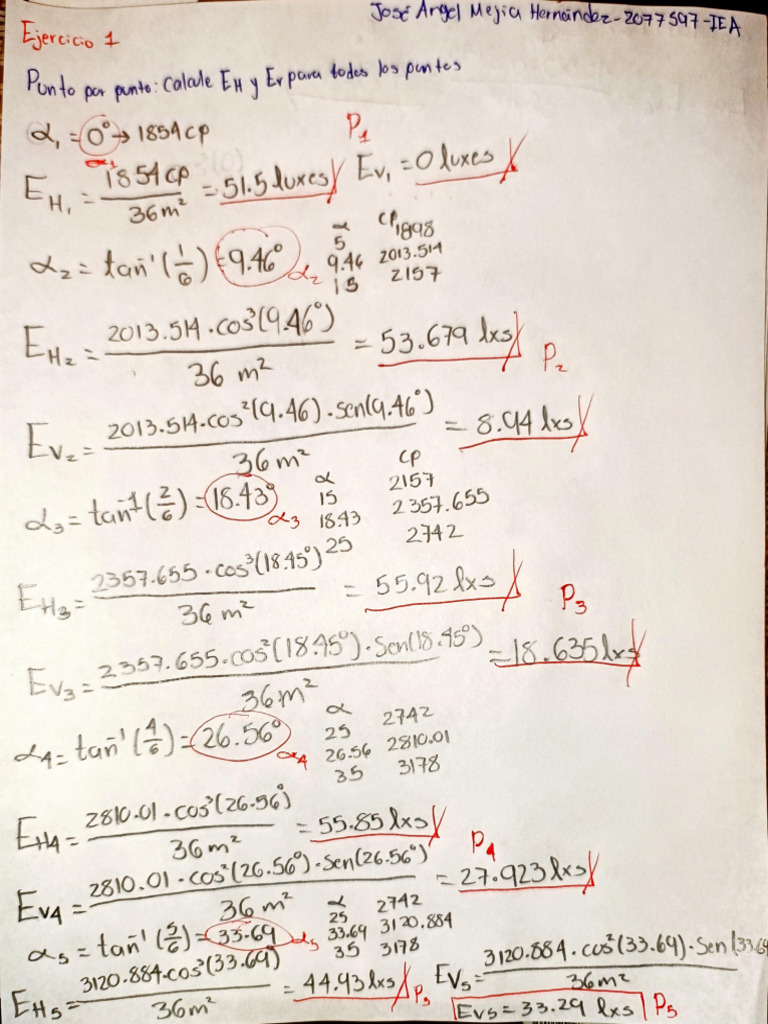 José Angel Mejia Hernández-2077597-IEA
Ejercicio 1
Punto por punto: Calcule EH y Ev para todos los puntos
α₁ = 0° → 1854 cp
α₁
P₁
EH₁ = 1854 cp / 36 m² = 51.5 luxes
Ev₁ = 0 luxes
α₂ = tan⁻¹(1/6) = 9.46° α₂
α cp
5 1898
9.46 2013.514
15 2157
EH₂ = 2013.514 · cos³(9.46°) / 36 m² = 53.679 lxs P₂
Ev₂ = 2013.514 · cos²(9.46) · sen(9.46°) / 36 m² = 8.94 lxs
α₃ = tan⁻¹(2/6) = 18.43° α₃
α cp
15 2157
18.43 2357.655
25 2742
EH₃ = 2357.655 · cos³(18.45°) / 36 m² = 55.92 lxs P₃
Ev₃ = 2357.655 · cos²(18.45°) · Sen(18.45°) / 36 m² = 18.635 lxs
α₄ = tan⁻¹(4/6) = 26.56° α₄
α
25 2742
26.56 2810.01
35 3178
EH₄ = 2810.01 · cos³(26.56°) / 36 m² = 55.85 lxs P₄
Ev₄ = 2810.01 · cos²(26.56°) · Sen(26.56°) / 36 m² = 27.923 lxs
α₅ = tan⁻¹(5/6) = 33.69 α₅
α
25 2742
33.69 3120.884
35 3178
EH₅ = 3120.884 · cos³(33.69) / 36 m² = 44.93 lxs P₅
Ev₅ = 3120.884 · cos²(33.69) · Sen(33.69 / 36 m²
Ev₅ = 33.29 lxs P₅